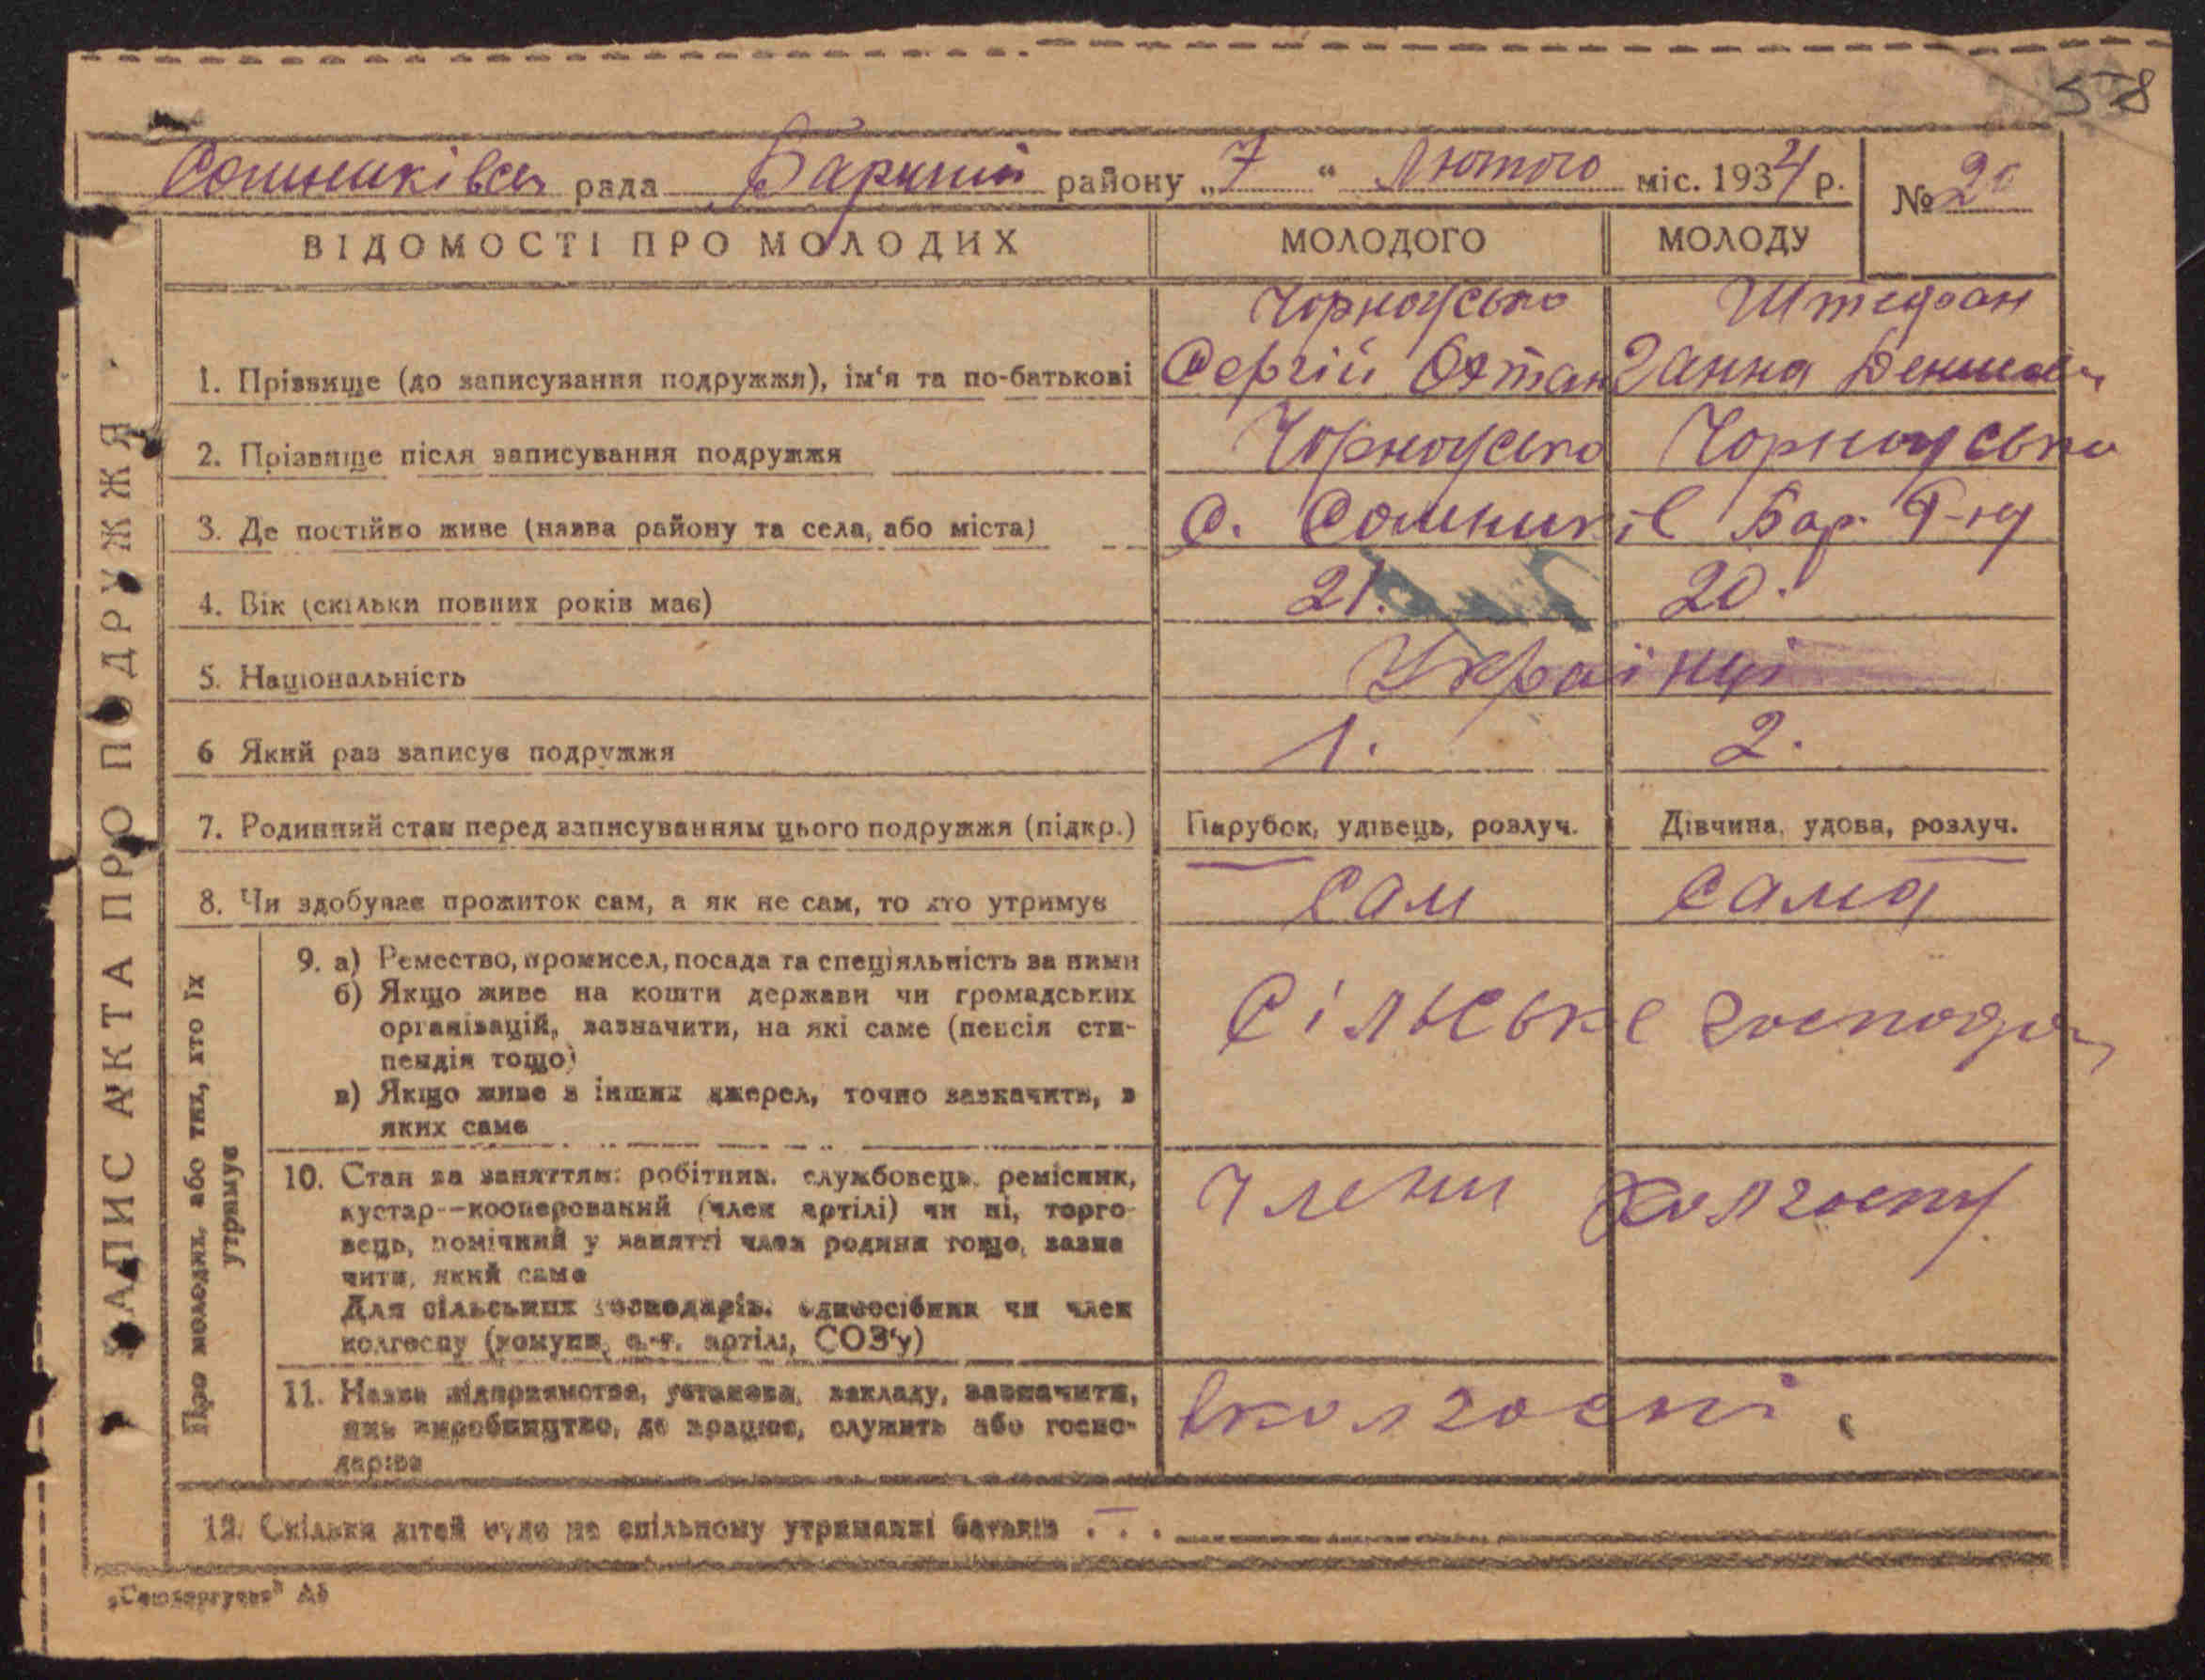 578
Сошниківська рада Баришів району „7“ Лютого міс. 1934 р. № 20
ВІДОМОСТІ ПРО МОЛОДИХ МОЛОДОГО МОЛОДУ
Чорноусько Штефан
1. Прізвище (до записування подружжя), ім‘я та по-батькові Сергій Остап Ганна
2. Прізвище після записування подружжя Чорноусько Чорноусько
3. Де постійно живе (назва району та села, або міста) С. Сошників Бар. Р-ну
4. Вік (скільки повних років має) 21. 20.
5. Національність Українці
6 Який раз записує подружжя 1. 2.
7. Родинний стан перед записуванням цього подружжя (підкр.) Парубок, удівець, розлуч. Дівчина, удова, розлуч.
8. Чи здобуває прожиток сам, а як не сам, то хто утримує сам сама
9. а) Ремество, промисел, посада та спеціяльність за ними
б) Якщо живе на кошти держави чи громадських
організацій, зазначити, на які саме (пенсія сти-
пендія тощо)
в) Якщо живе з інших джерел, точно зазначити, з
яких саме
Сільське господар
10. Стан за заняттям: робітник, службовець, ремісник,
кустар--кооперований (член артілі) чи ні, торго-
вець, помічний у занятті член родини тощо, зазна
чити, який саме
Для сільських господарів, одноосібник чи член
колгоспу (комуни, с.-г. артілі, СОЗ‘у)
Члени колгоспу
11. Назва підприємства, установи, закладу, зазначити,
яке виробництво, де працює, служить або госпо-
дарює
вколгоспі.
12. Скільки дітей буде на спільному утриманні батьків . . .
ЗАПИС АКТА ПРО ПОДРУЖЖЯ
Про молодих, або тих, хто їх
утримує